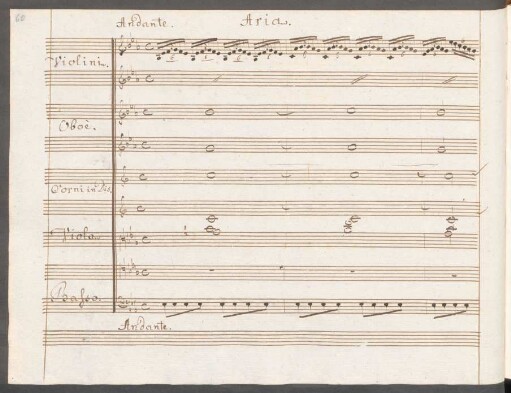 60
Andante. Aria.
Violini.
Oboè.
Corni in
Viola.
Basso.
Andante.